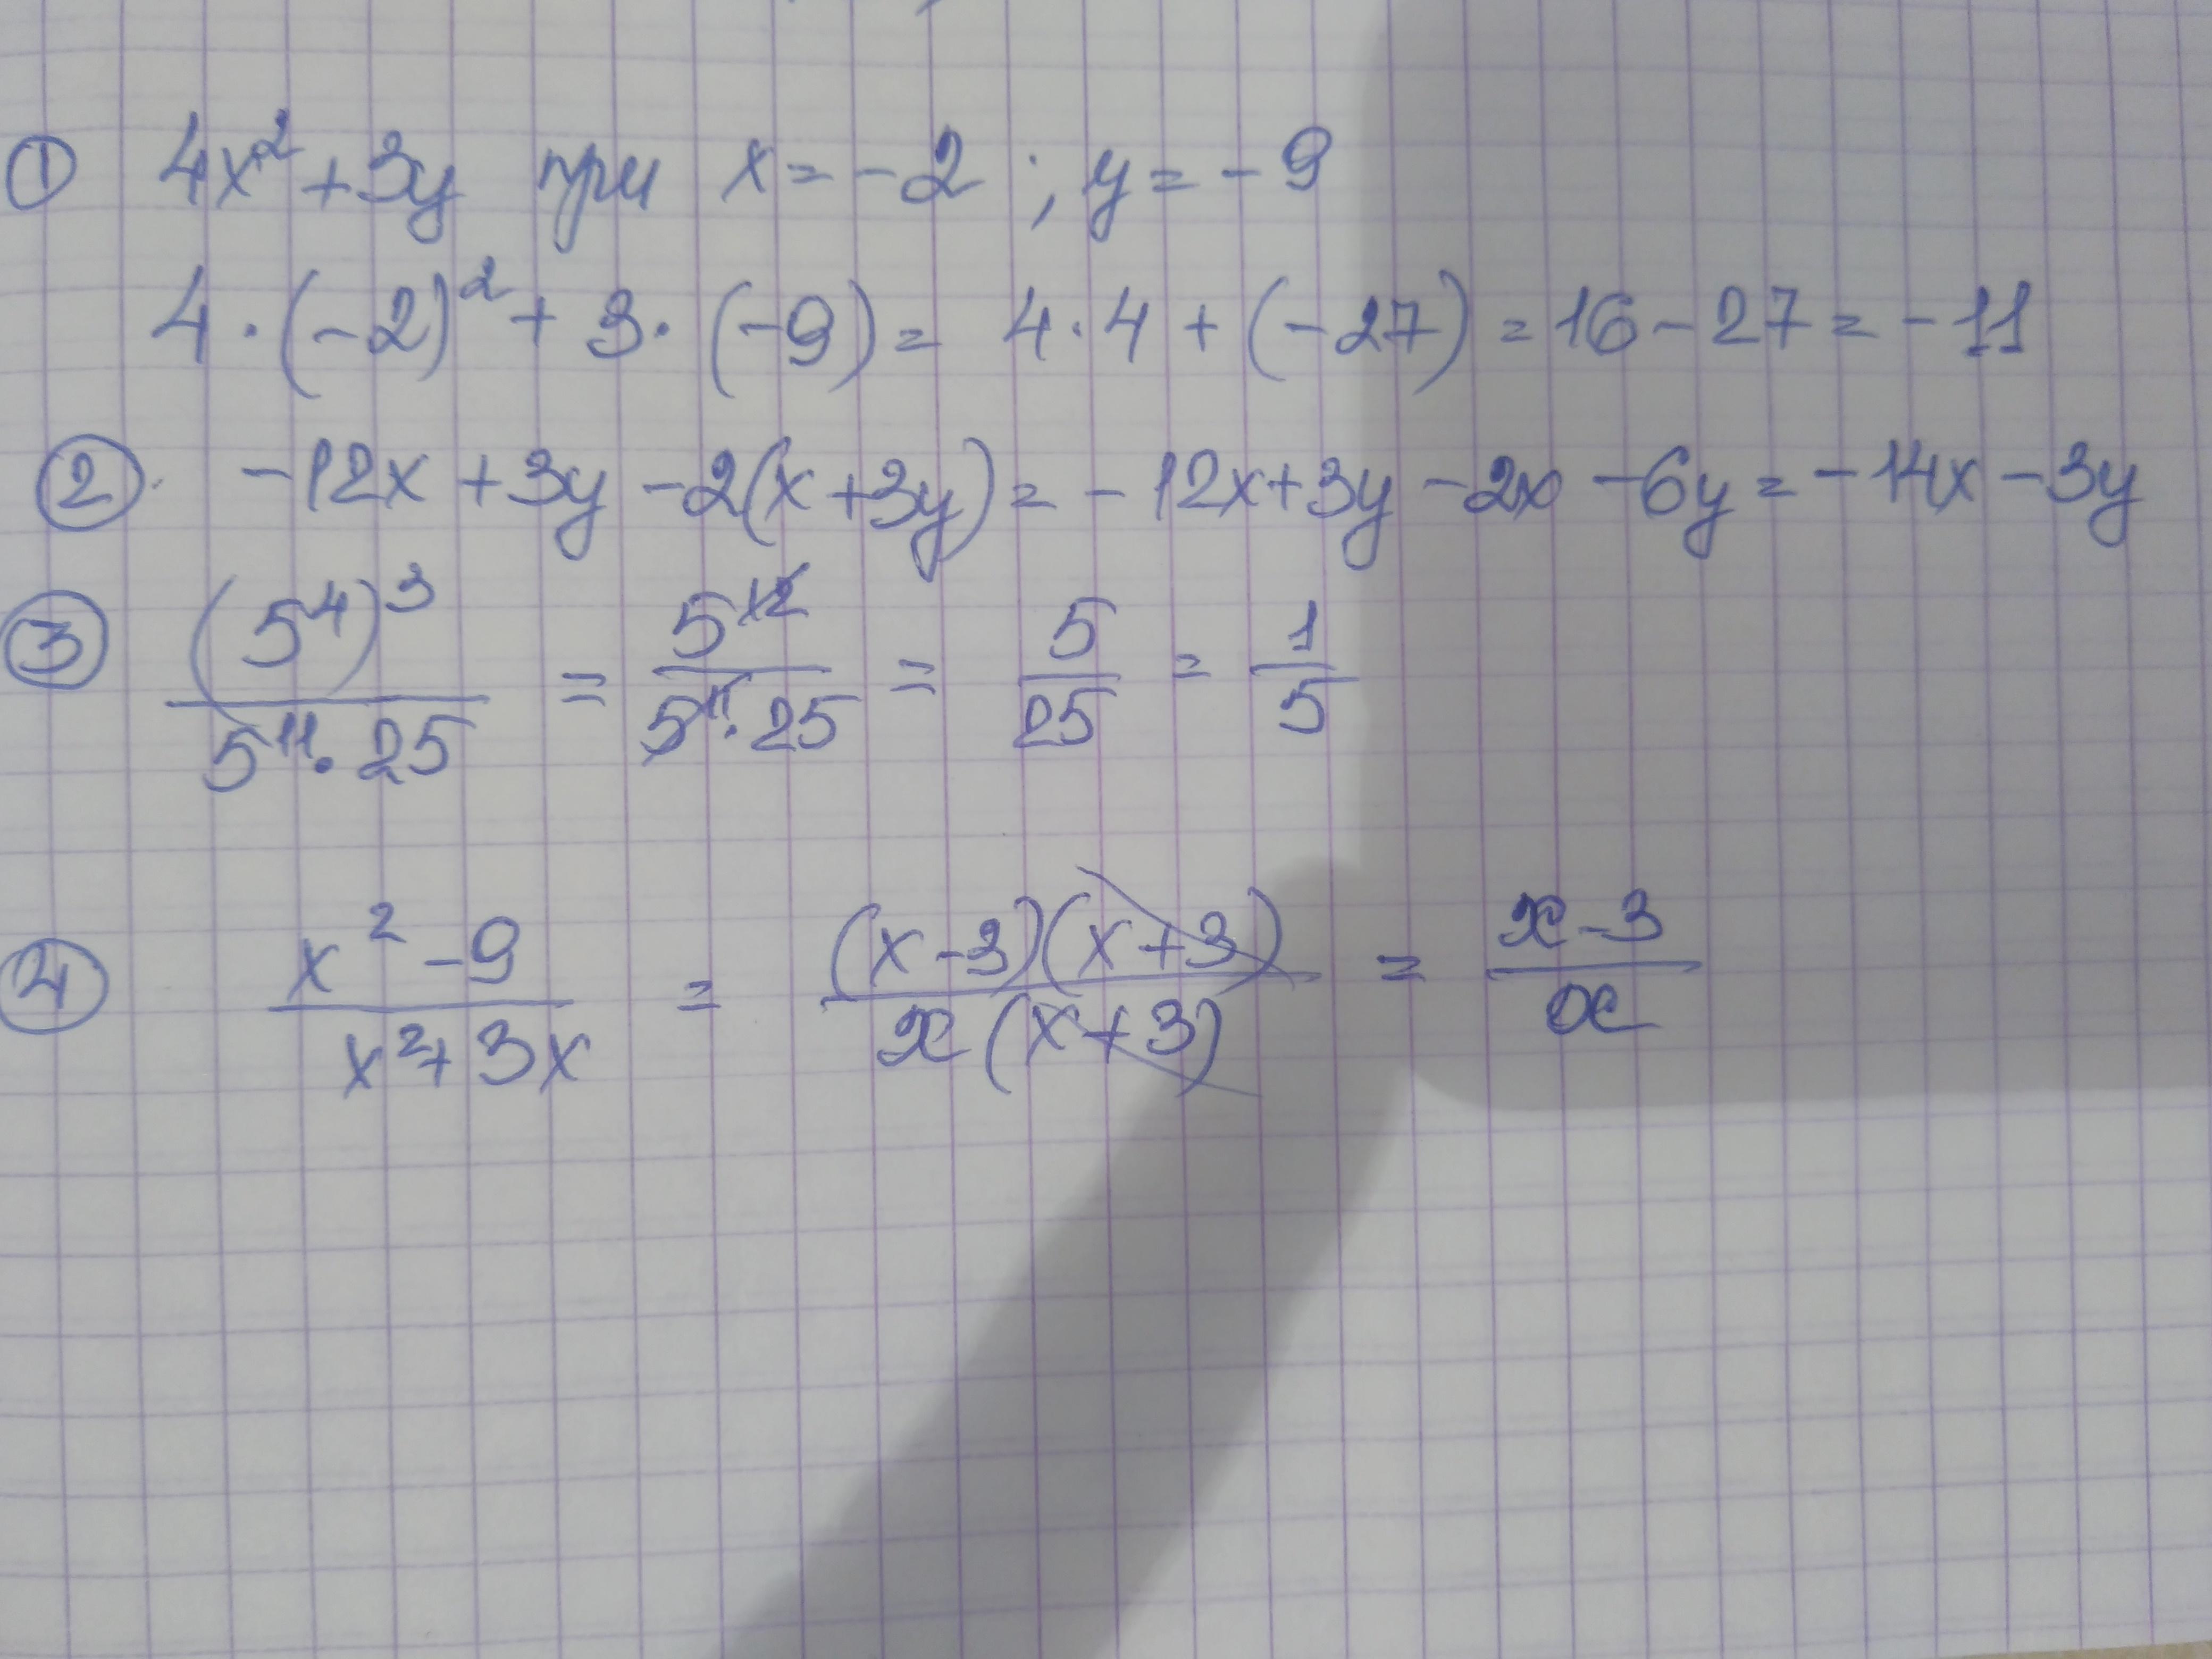 ① 4x² + 3y при x = -2 ; y = -9
4 · (-2)² + 3 · (-9) = 4 · 4 + (-27) = 16 - 27 = -11
② -12x + 3y - 2(x + 3y) = -12x + 3y - 2x - 6y = -14x - 3y
③ (5⁴)³ / 5¹¹ · 25 = 5¹² / 5¹¹ · 25 = 5 / 25 = 1 / 5
④ x² - 9 / x² + 3x = (x - 3)(x + 3) / x(x + 3) = x - 3 / x